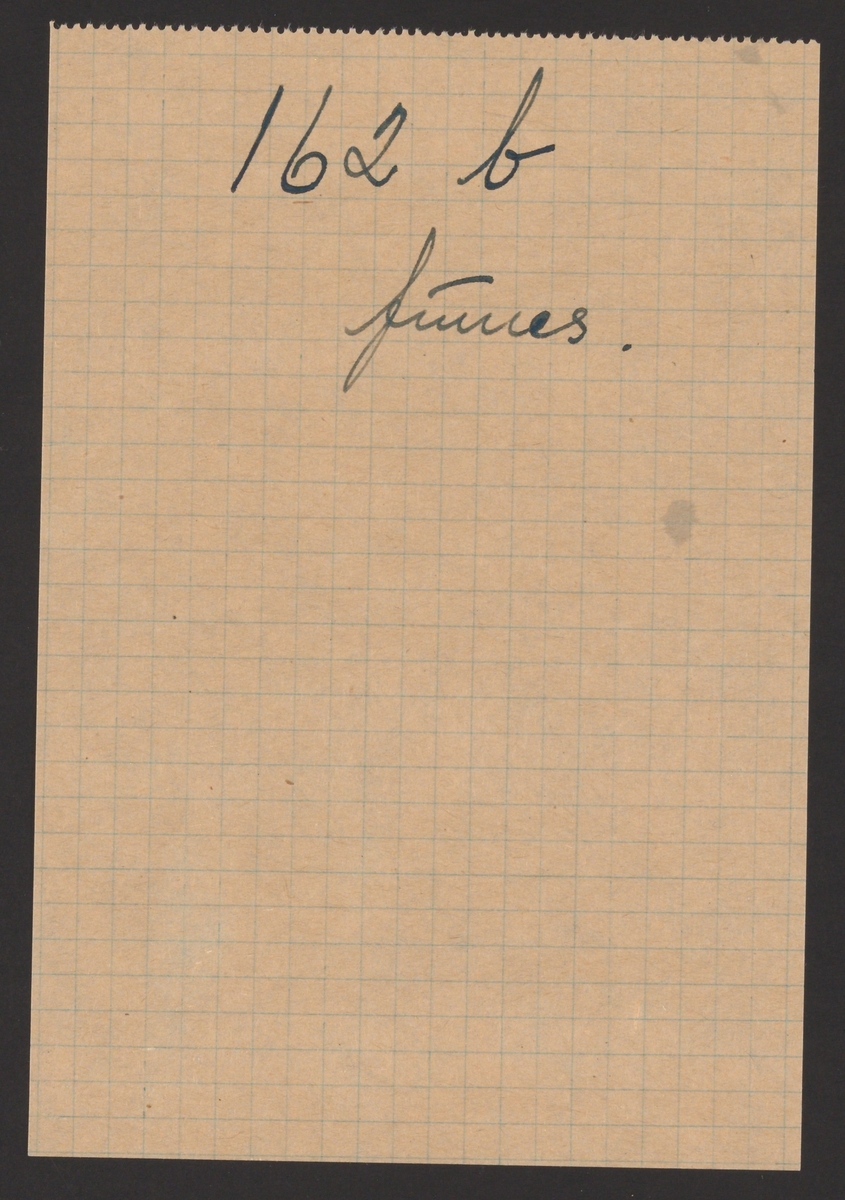 162 b
finnes.